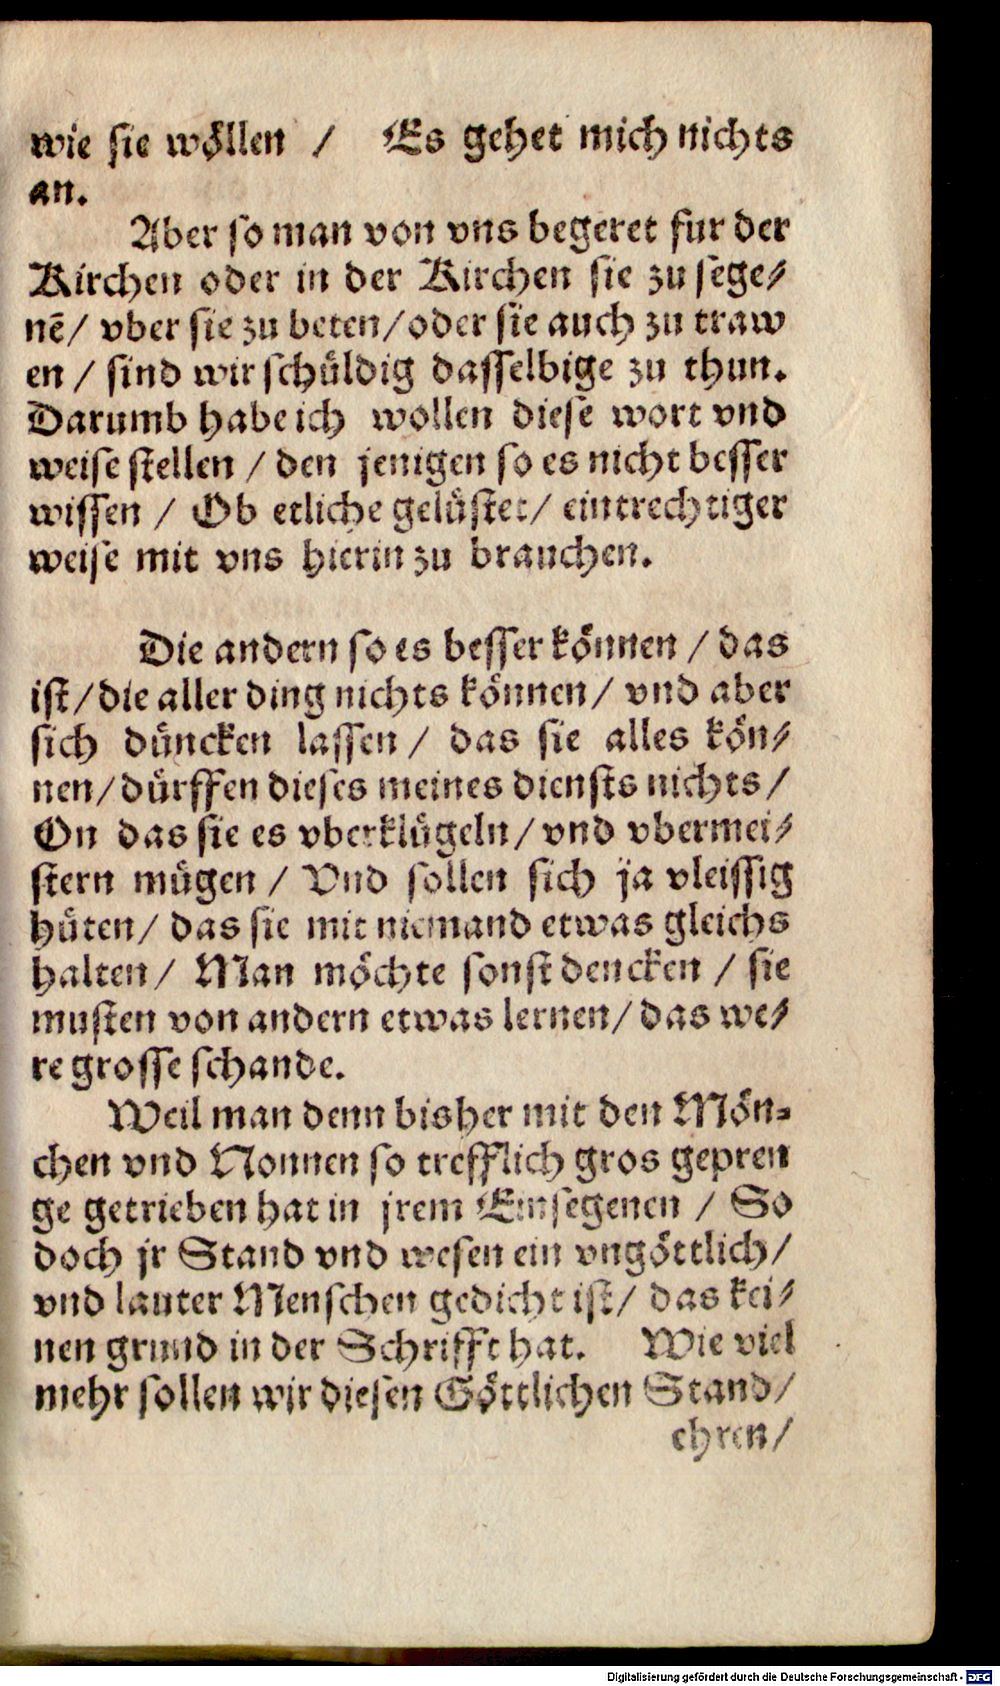 wie sie wöllen / Es gehet mich nichts
an.
Aber so man von vns begeret fur der
Kirchen oder in der Kirchen sie zu sege⸗
nē/ vber sie zu beten/ oder sie auch zu traw
en / sind wir schüldig dasselbige zu thun.
Darumb habe ich wollen diese wort vnd
weise stellen / den jenigen so es nicht besser
wissen / Ob etliche gelüstet/ eintrechtiger
weise mit vns hierin zu brauchen.
Die andern so es besser können / das
ist/ die aller ding nichts können/ vnd aber
sich düncken lassen / das sie alles kön⸗
nen/ dürffen dieses meines diensts nichts /
On das sie es vberklügeln/ vnd vbermei⸗
stern mügen / Vnd sollen sich ja vleissig
hüten/ das sie mit niemand etwas gleichs
halten/ Man möchte sonst dencken / sie
musten von andern etwas lernen/ das we⸗
re grosse schande.
Weil man denn bisher mit den Mön⸗
chen vnd Nonnen so trefflich gros gepren
ge getrieben hat in jrem Einsegenen / So
doch jr Stand vnd wesen ein vngöttlich/
vnd lauter Menschen gedicht ist/ das kei⸗
nen grund in der Schrifft hat. Wie viel
mehr sollen wir diesen Göttlichen Stand/
ehren/
Digitalisierung gefördert durch die Deutsche Forschungsgemeinschaft - DFG